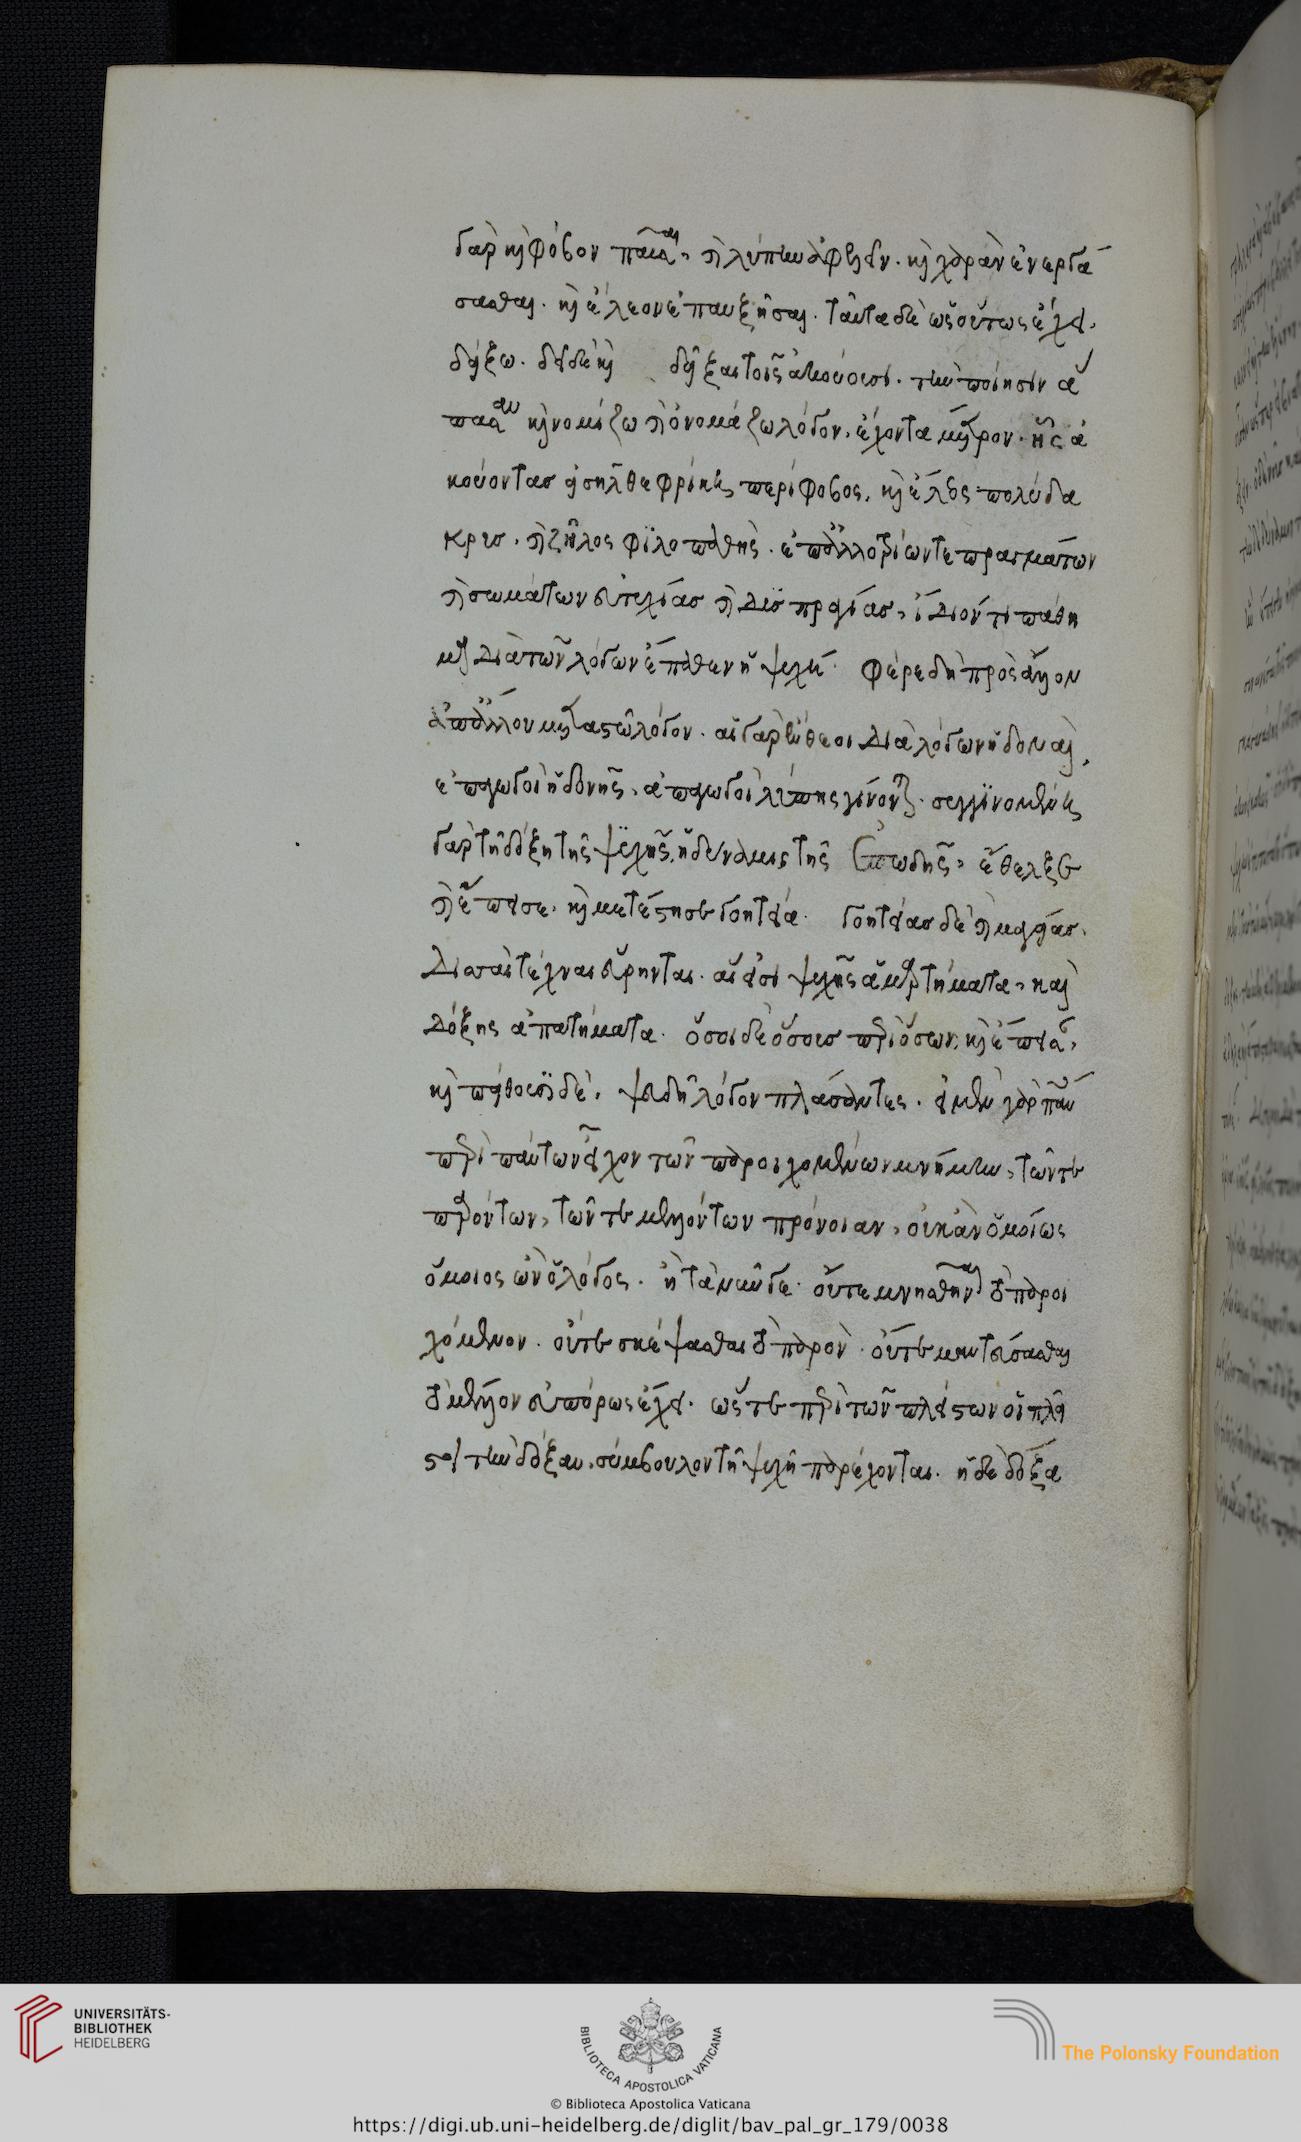 γὰρ καὶ φόβον παῦσαι, καὶ λύπην ἀφελεῖν. καὶ χαρὰν ἐνεργά
σασθαι. καὶ ἔλεον ἐπαυξῆσαι. ταῦτα δὲ ὡς οὕτως ἔχει.
δείξω. δεῖ δὲ καὶ δεῖξαι τοῖς ἀκούουσι. τὴν ποίησιν ἅ
πασαν καὶ νομίζω καὶ ὀνομάζω λόγον, ἔχοντα μέτρον. ἧς ἀ
κούοντας εἰσῆλθε φρίκη περίφοβος, καὶ ἔλεος πολύδα
κρυς, καὶ ζῆλος φιλοπαθής. ἐπ' ἀλλοτρίων τε πραγμάτων
καὶ σωμάτων εὐτυχίας καὶ δυσπραγίας, ἴδιόν τι πάθη
μα διὰ τῶν λόγων ἔπαθεν ἡ ψυχή. φέρε δὴ πρὸς ἄλλον
ἀπ' ἄλλου μεταστῶ λόγον. αἱ γὰρ ἔνθεοι διὰ λόγων ἡδοναὶ,
ἐπαγωγοὶ ἡδονῆς, ἀπαγωγοὶ λύπης γίνονται. συγγινομένη
γὰρ τῇ δόξῃ τῆς ψυχῆς, ἡ δύναμις τῆς ἐπωδῆς, ἔθελξε
καὶ ἔπεισε, καὶ μετέστησε γοητεία. γοητείας δὲ καὶ μαγείας,
δισσαὶ τέχναι εὕρηνται. αἵ εἰσι ψυχῆς ἁμαρτήματα, καὶ
δόξης ἀπατήματα. ὅσοι δὲ ὅσους περὶ ὅσων, καὶ ἔπεισαν,
καὶ πείθουσι δὲ, ψευδῆ λόγον πλάσαντες. εἰ μὲν γὰρ πάντες
περὶ πάντων εἶχον τῶν παροιχομένων μνήμην, τῶν τε
παρόντων, τῶν τε μελλόντων πρόνοιαν, οὐκ ἂν ὁμοίως
ὅμοιος ὢν ὁ λόγος. ἢ τὰ νῦν γε. οὔτε μνησθῆναι τὸ παροι
χόμενον. οὔτε σκέψασθαι τὸ παρὸν. οὔτε μαντεύσασθαι
τὸ μέλλον εὐπόρως ἔχει. ὥστε περὶ τῶν πλείστων οἱ πλεῖ
στοι τὴν δόξαν, σύμβουλον τῇ ψυχῇ παρέχονται. ἡ δὲ δόξα
UNIVERSITÄTS-
BIBLIOTHEK
HEIDELBERG
BIBLIOTECA APOSTOLICA VATICANA
The Polonsky Foundation
© Biblioteca Apostolica Vaticana
https://digi.ub.uni-heidelberg.de/diglit/bav_pal_gr_179/0038